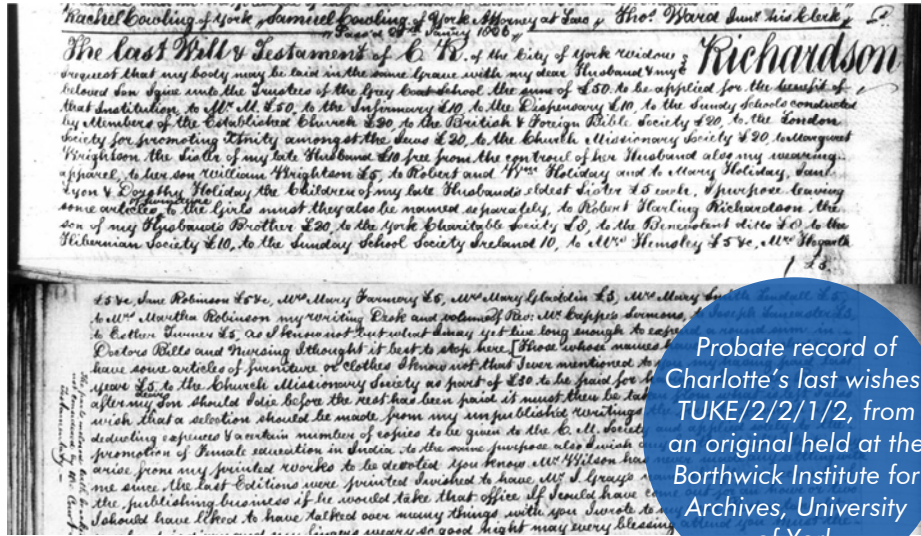 Rachel Cowling of York " Samuel Cowling of York Attorney at Law " Thos. Ward Junr. his Clerk "
"Pass'd Janry 1826 "
The last Will & Testament of C R. of the City of York widow I Richardson
request that my body may be laid in the same Grave with my dear Husband & my
beloved Son I give unto the Trustees of the Grey Coat School the sum of £50 to be applied for the benefit of
that Institution, to Mr. M. £50, to the Infirmary £10, to the Dispensary £10, to the Sundy Schools conducted
by Members of the Established Church £20, to the British & Foreign Bible Society £20, to the London
Society for promoting Xtnity amongst the Jews £20, to the Church Missionary Society £20, to Margaret
Wrightson the Sister of my late Husband £10 free from the controul of her Husband also my wearing
apparel, to her son William Wrightson £5, to Robert and Wm. Holiday and to Mary Holiday, Jane
Lyon & Dorothy Holiday the Children of my late Husband's eldest Sister £5 each, I purpose leaving
some articles of furniture to the Girls must they also be named separately, to Robert Harling Richardson, the
son of my Husband's Brother £20, to the York Charitable Society £8, to the Benevolent ditto £8 to the
Hibernian Society £10, to the Sunday School Society Ireland 10, to Mrs. Hemsley £5 &c, Mrs. Hogarth
£5.
£5 &c, Jane Robinson £5 &c, Mrs. Mary Farmery £5, Mrs. Mary Gladdin £3, Mrs. Mary Smith Lendall £5,
to Mrs. Martha Robinson my writing Desk and volume of Rev: Mr. Cappe's Sermons, to Joseph Lancaster £3,
to Esther Turner £5, as I know not but what I may yet live long enough to expend a round sum in
Doctors Bills and Nursing I thought it best to stop here, [Those whose names
have some articles of furniture or clothes I know not that I ever mentioned to you my having paid last
year £5 to the Church Missionary Society as part of £50 to be paid for
after my dear Son should I die before the rest has been paid it must then be taken from what is left I also
wish that a selection should be made from my unpublished writings
deducting expences & a certain number of copies to be given to the C. M. Society and applied solely to the
promotion of Female education in India, to the same purpose also I wish
arise from my printed works to be devoted you know Mr. Wilson has
me since the last Editions were printed I wished to have Mr. J. Gray's
the publishing business if he would take that office If I could have come out
I should have liked to have talked over many things with you I wrote to
my fingers weary so good night may every blessing attend you
Probate record of
Charlotte's last wishes
TUKE/2/2/1/2, from
an original held at the
Borthwick Institute for
Archives, University
of York